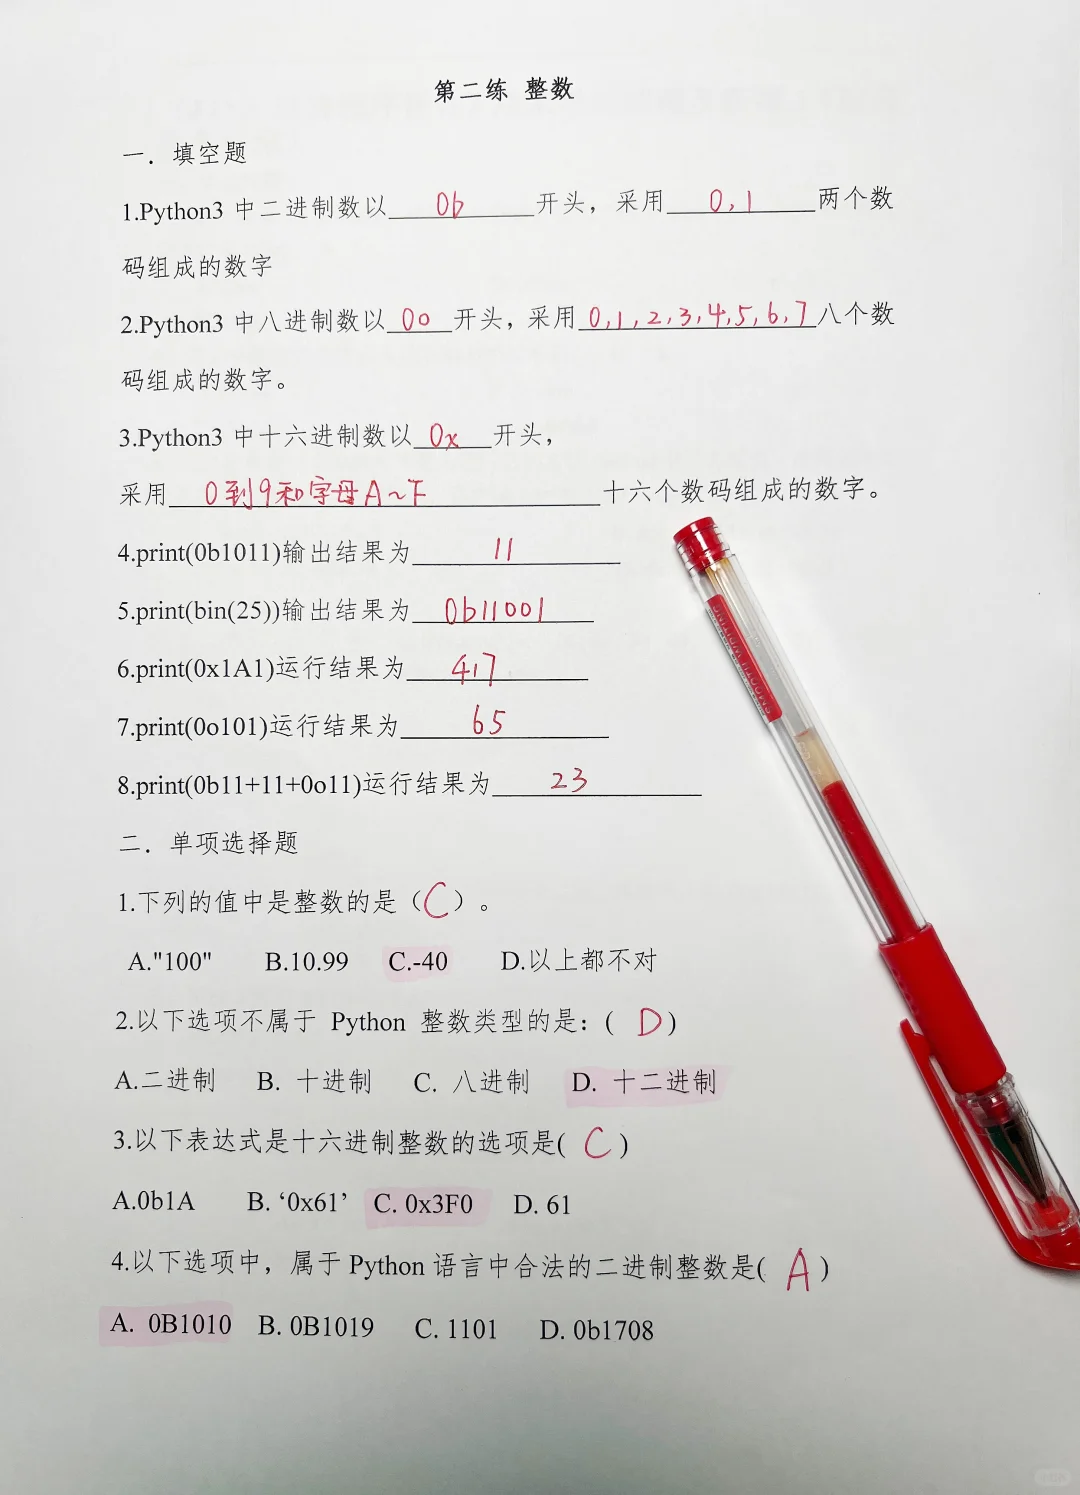 第二练 整数
一. 填空题
1.Python3 中二进制数以 0b 开头，采用 0,1 两个数
码组成的数字
2.Python3 中八进制数以 0o 开头，采用 0,1,2,3,4,5,6,7 八个数
码组成的数字。
3.Python3 中十六进制数以 0x 开头，
采用 0到9和字母A~F 十六个数码组成的数字。
4.print(0b1011)输出结果为 11
5.print(bin(25))输出结果为 0b11001
6.print(0x1A1)运行结果为 417
7.print(0o101)运行结果为 65
8.print(0b11+11+0o11)运行结果为 23
二. 单项选择题
1.下列的值中是整数的是（C）。
A."100" B.10.99 C.-40 D.以上都不对
2.以下选项不属于 Python 整数类型的是：( D )
A.二进制 B. 十进制 C. 八进制 D. 十二进制
3.以下表达式是十六进制整数的选项是( C )
A.0b1A B. ‘0x61’ C. 0x3F0 D. 61
4.以下选项中，属于 Python 语言中合法的二进制整数是( A )
A. 0B1010 B. 0B1019 C. 1101 D. 0b1708